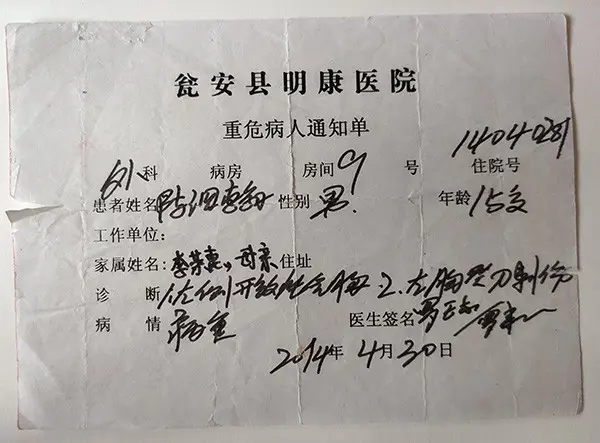 瓮安县明康医院
重危病人通知单
外科 病房 房间 9 号 14040281 住院号
患者姓名 性别 男. 年龄 15岁
工作单位:
家属姓名: 母亲 住址
诊断 左侧开放性气胸 2. 左胸壁刀刺伤
病情 病重 医生签名
2014年4月30日